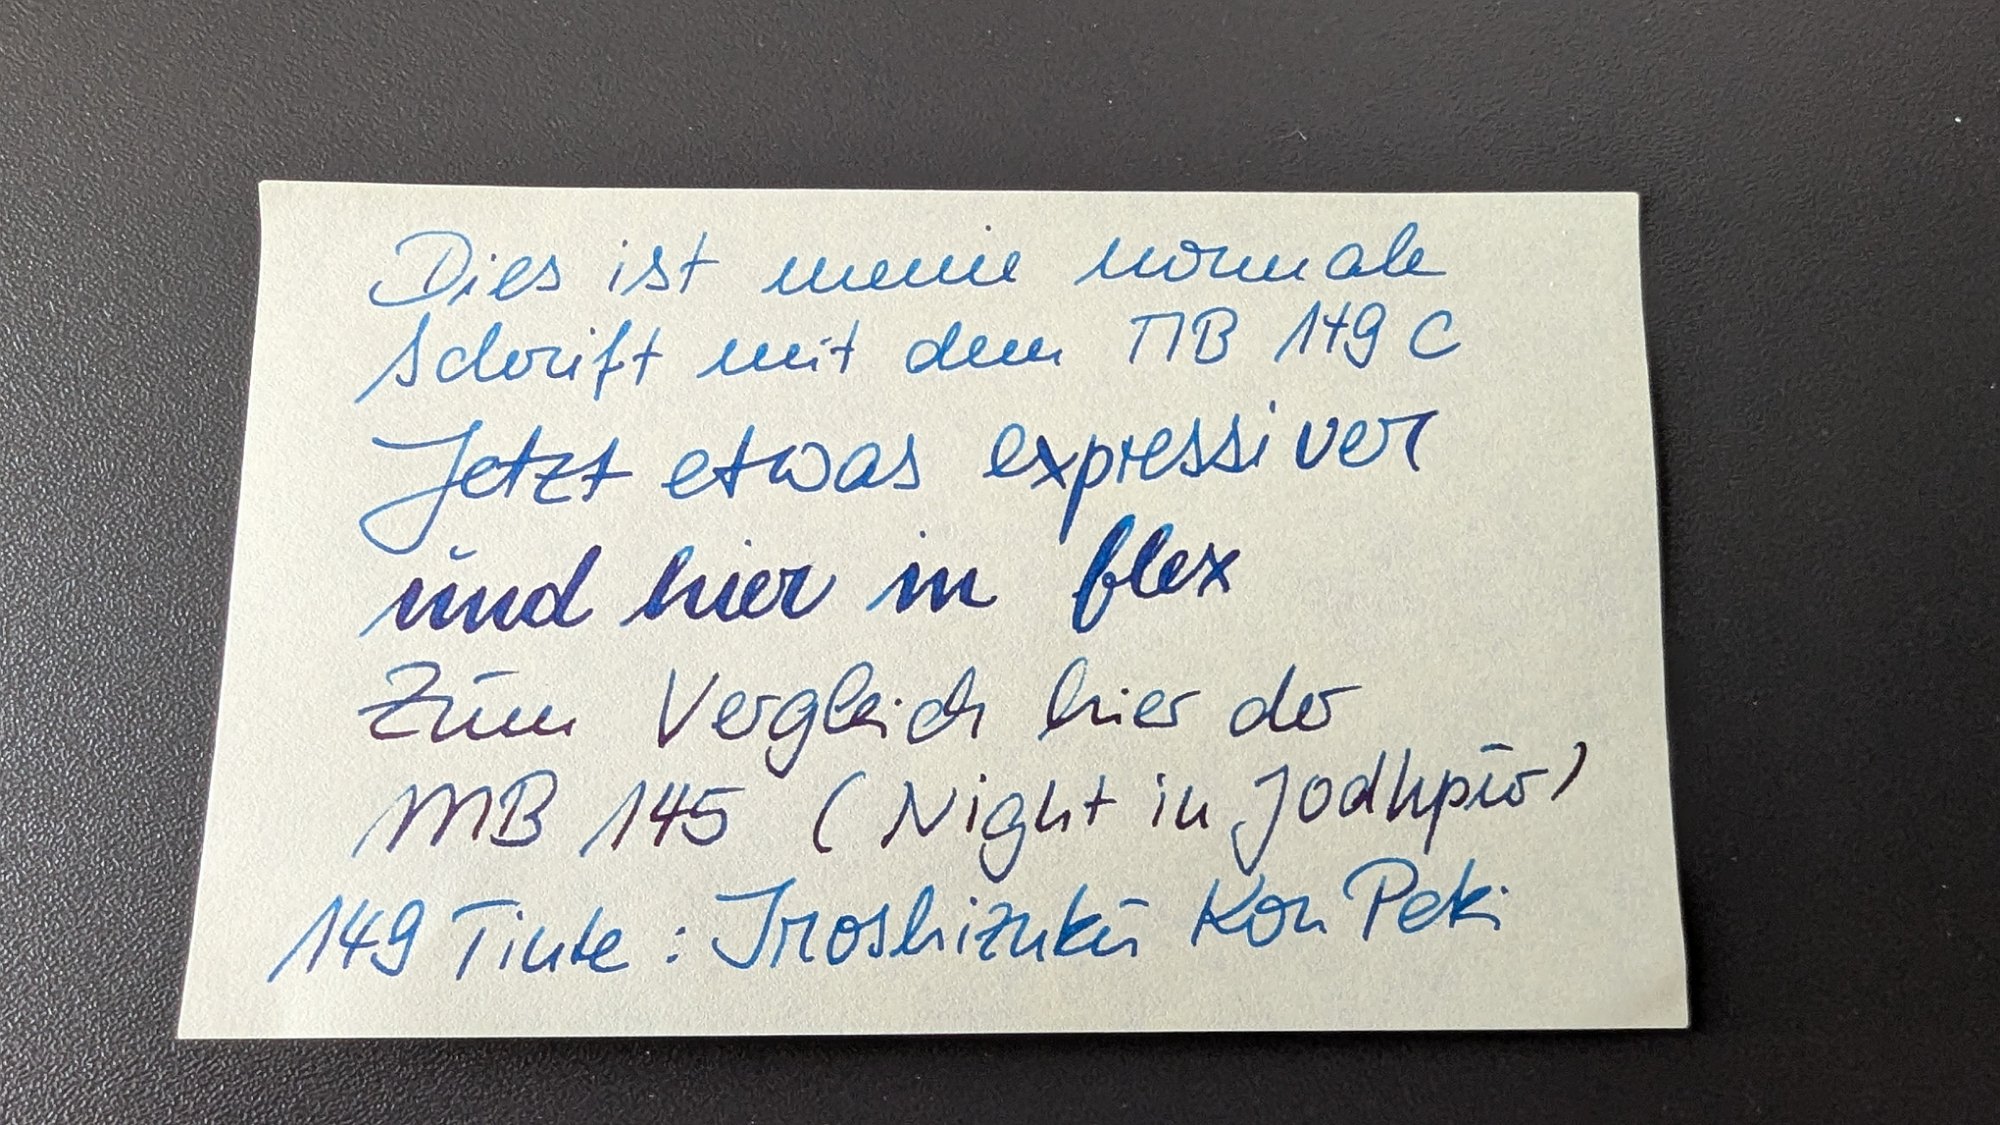 Dies ist meine normale
Schrift mit dem MB 149 C
Jetzt etwas expressiver
und hier in flex
Zum Vergleich hier der
MB 145 (Night in Jodhpur)
149 Tinte: Iroshizuku Kon Peki